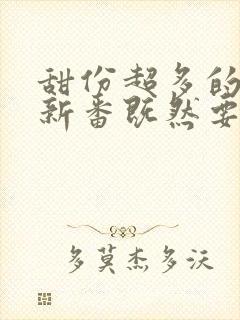 甜份超多的
新番既然要
多莫杰多沃